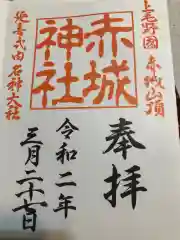 上毛野國赤城山頂
奉拝
赤城神社
令和二年
三月二十七日
延喜式内名神大社